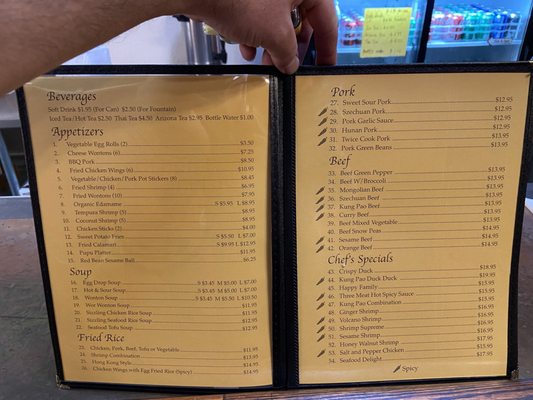 Beverages
Soft Drink $1.95 (For Can) $2.50 (For Fountain)
Iced Tea/Hot Tea $2.50 Thai Tea $4.50 Arizona Tea $2.95 Bottle Water $1.00
Appetizers
1. Vegetable Egg Rolls (2) $3.50
2. Cheese Wontons (6) $7.25
3. BBQ Pork $8.50
4. Fried Chicken Wings (6) $10.95
5. Vegetable/Chicken/Pork Pot Stickers (8) $8.45
6. Fried Shrimp (4) $6.95
7. Fried Wontons (10) $7.95
8. Organic Edamame S $5.95 L $8.95
9. Tempura Shrimp (5) $8.95
10. Coconut Shrimp (5) $8.95
11. Chicken Sticks (2) $4.00
12. Sweet Potato Fries S $5.50 L $7.00
13. Fried Calamari S $9.95 L $12.95
14. Pupu Platter $11.95
15. Red Bean Sesame Ball $6.25
Soup
16. Egg Drop Soup S $3.45 M $5.00 L $7.00
17. Hot & Sour Soup S $3.45 M $5.00 L $7.00
18. Wonton Soup S $3.45 M $5.50 L $10.50
19. Wor Wonton Soup $11.95
20. Sizzling Chicken Rice Soup $11.95
21. Sizzling Seafood Rice Soup $12.95
22. Seafood Tofu Soup $12.95
Fried Rice
23. Chicken, Pork, Beef, Tofu or Vegetable $11.95
24. Shrimp Combination $13.95
25. Hong Kong Style $14.95
26. Chicken Wings with Egg Fried Rice (Spicy) $14.95
Pork
27. Sweet Sour Pork $12.95
28. Szechuan Pork $12.95
29. Pork Garlic Sauce $12.95
30. Hunan Pork $12.95
31. Twice Cook Pork $13.95
32. Pork Green Beans $13.95
Beef
33. Beef Green Pepper $13.95
34. Beef W/Broccoli $13.95
35. Mongolian Beef $13.95
36. Szechuan Beef $13.95
37. Kung Pao Beef $13.95
38. Curry Beef $13.95
39. Beef Mixed Vegetable $13.95
40. Beef Snow Peas $14.95
41. Sesame Beef $14.95
42. Orange Beef $14.95
Chef's Specials
43. Crispy Duck $18.95
44. Kung Pao Duck Duck $19.95
45. Happy Family $15.95
46. Three Meat Hot Spicy Sauce $15.95
47. Kung Pao Combination $15.95
48. Ginger Shrimp $16.95
49. Volcano Shrimp $16.95
50. Shrimp Supreme $16.95
51. Sesame Shrimp $16.95
52. Honey Walnut Shrimp $17.95
53. Salt and Pepper Chicken $15.95
54. Seafood Delight $17.95
Spicy